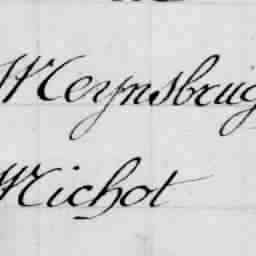 Meynsbrug
Michot